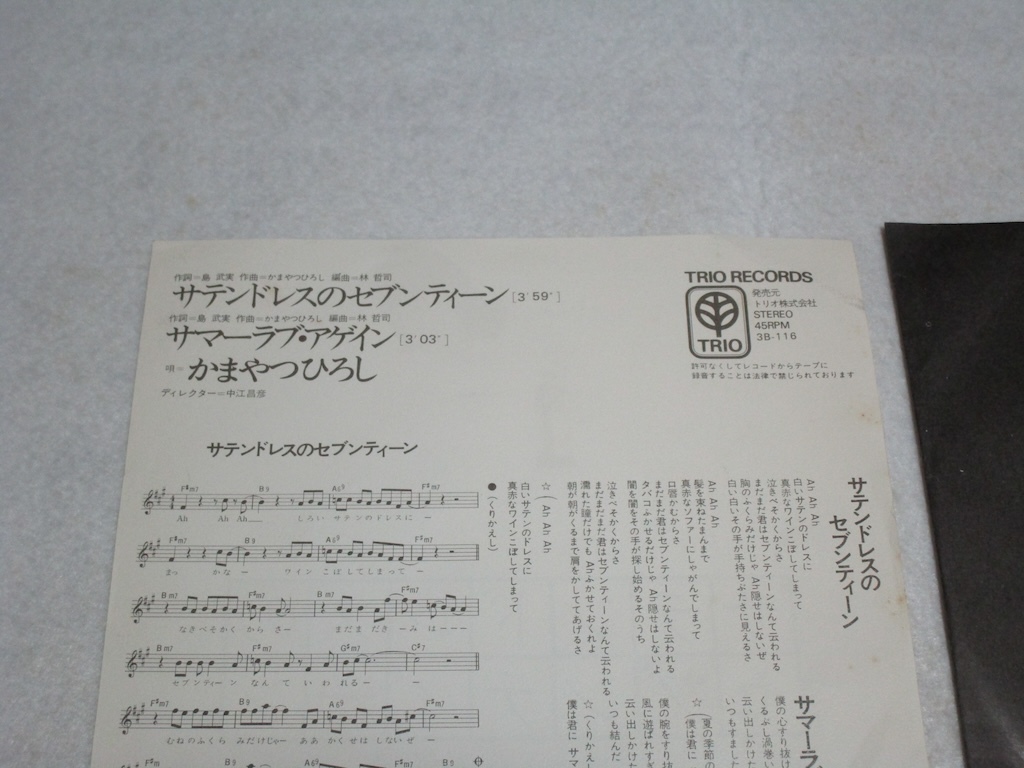 作詞=島 武実 作曲=かまやつひろし 編曲=林 哲司
サテンドレスのセブンティーン[3′59″]
作詞=島 武実 作曲=かまやつひろし 編曲=林 哲司
サマーラブ・アゲイン[3′03″]
唄=かまやつひろし
ディレクター=中江昌彦
TRIO RECORDS
TRIO
発売元
トリオ株式会社
STEREO
45RPM
3B-116
許可なくしてレコードからテープに
録音することは法律で禁じられております
サテンドレスのセブンティーン
F#m7 B9 A69 F#m7
Ah Ah Ah しろい サテンのドレスに ー
F#m7 B9 A69 F#m7
まっ かなー ワイン こぼしてしまってー
Bm7 F#m7 Bm7 F#m7
なきべそかく からさー まだまだきーみはーーー
Bm7 F#m7 G#m7 C#7
セブンティーン なんていわれるーー
F#m7 B9 A69 F#m7
むねのふくら みだけじゃー ああ かくせはしないぜ ー
サテンドレスの
セブンティーン
Ah Ah Ah
白いサテンのドレスに
真赤なワインこぼしてしまって
泣きべそかくからさ
まだまだ君はセブンティーンなんて云われる
胸のふくらみだけじゃ Ah 隠せはしないぜ
白い白いその手が手持ちぶたさに見えるさ
Ah Ah Ah
髪を束ねたまんまで
真赤なソファーにしゃがんでしまって
口唇かむからさ
まだまだ君はセブンティーンなんて云われる
タバコふかせるだけじゃ Ah 隠せはしないよ
闇を闇をその手が探し始めるそのうち
泣きべそかくからさ
まだまだまだ君はセブンティーンなんて云われる
濡れた瞳だけでも Ah ふかせておくれよ
朝が朝がくるまで肩をかしててあげるさ
☆(Ah Ah Ah
白いサテンのドレスに
真赤なワインこぼしてしまって
●(くりかえし)
サマーラブ
僕の心すり抜け
くるぶし渦巻い
云い出しかけた
いつもすました
☆(夏の季節の
(僕は君に
僕の腕をすり抜
風に遊ばれす
云い出しかけた
いつも結んだ
☆(くりかえし
僕は君に サマ